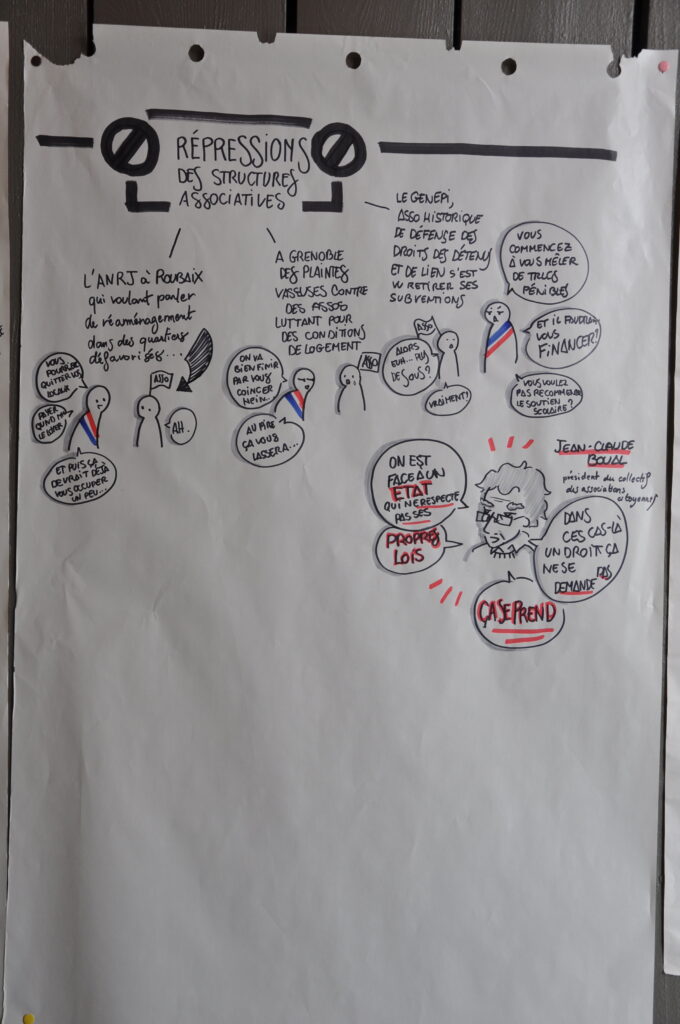 RÉPRESSIONS
DES STRUCTURES
ASSOCIATIVES
L'ANRJ à ROUBAIX
qui voulant parler
du réaménagement
dans des quartiers
défavorisés...
VOUS
POURRIEZ
QUITTER VOS
LOCAUX
PAYER
LE LOYER
ET PUIS ÇA
DEVRAIT DÉJÀ
VOUS OCCUPER
UN PEU...
ASSO
AH.
A GRENOBLE
DES PLAINTES
VASEUSES CONTRE
DES ASSOS
LUTTANT POUR
DES CONDITIONS
DE LOGEMENT
ON VA
BIEN FINIR
PAR VOUS
COINCER
HEIN...
AU PIRE
ÇA VOUS
LASSERA...
ASSO
LE GENEPI,
ASSO HISTORIQUE
DE DÉFENSE DES
DROITS DES DÉTENUS
ET DE LIEN S'EST
VU RETIRER SES
SUBVENTIONS
ASSO
ALORS
EUH... PLUS
DE SOUS?
VRAIMENT!
VOUS
COMMENCEZ
À VOUS MÊLER
DE TRUCS
PÉNIBLES
ET IL FAUDRAIT
VOUS
FINANCER?
VOUS VOULEZ
PAS RECOMMENCER
LE SOUTIEN
SCOLAIRE?
JEAN-CLAUDE
BOUAL
président du collectif
des associations
citoyennes
ON EST
FACE À UN
ETAT
QUI NE RESPECTE
PAS SES
PROPRES
LOIS
DANS
CES CAS-LÀ
UN DROIT ÇA
NE SE
DEMANDE PAS
ÇA SE PREND